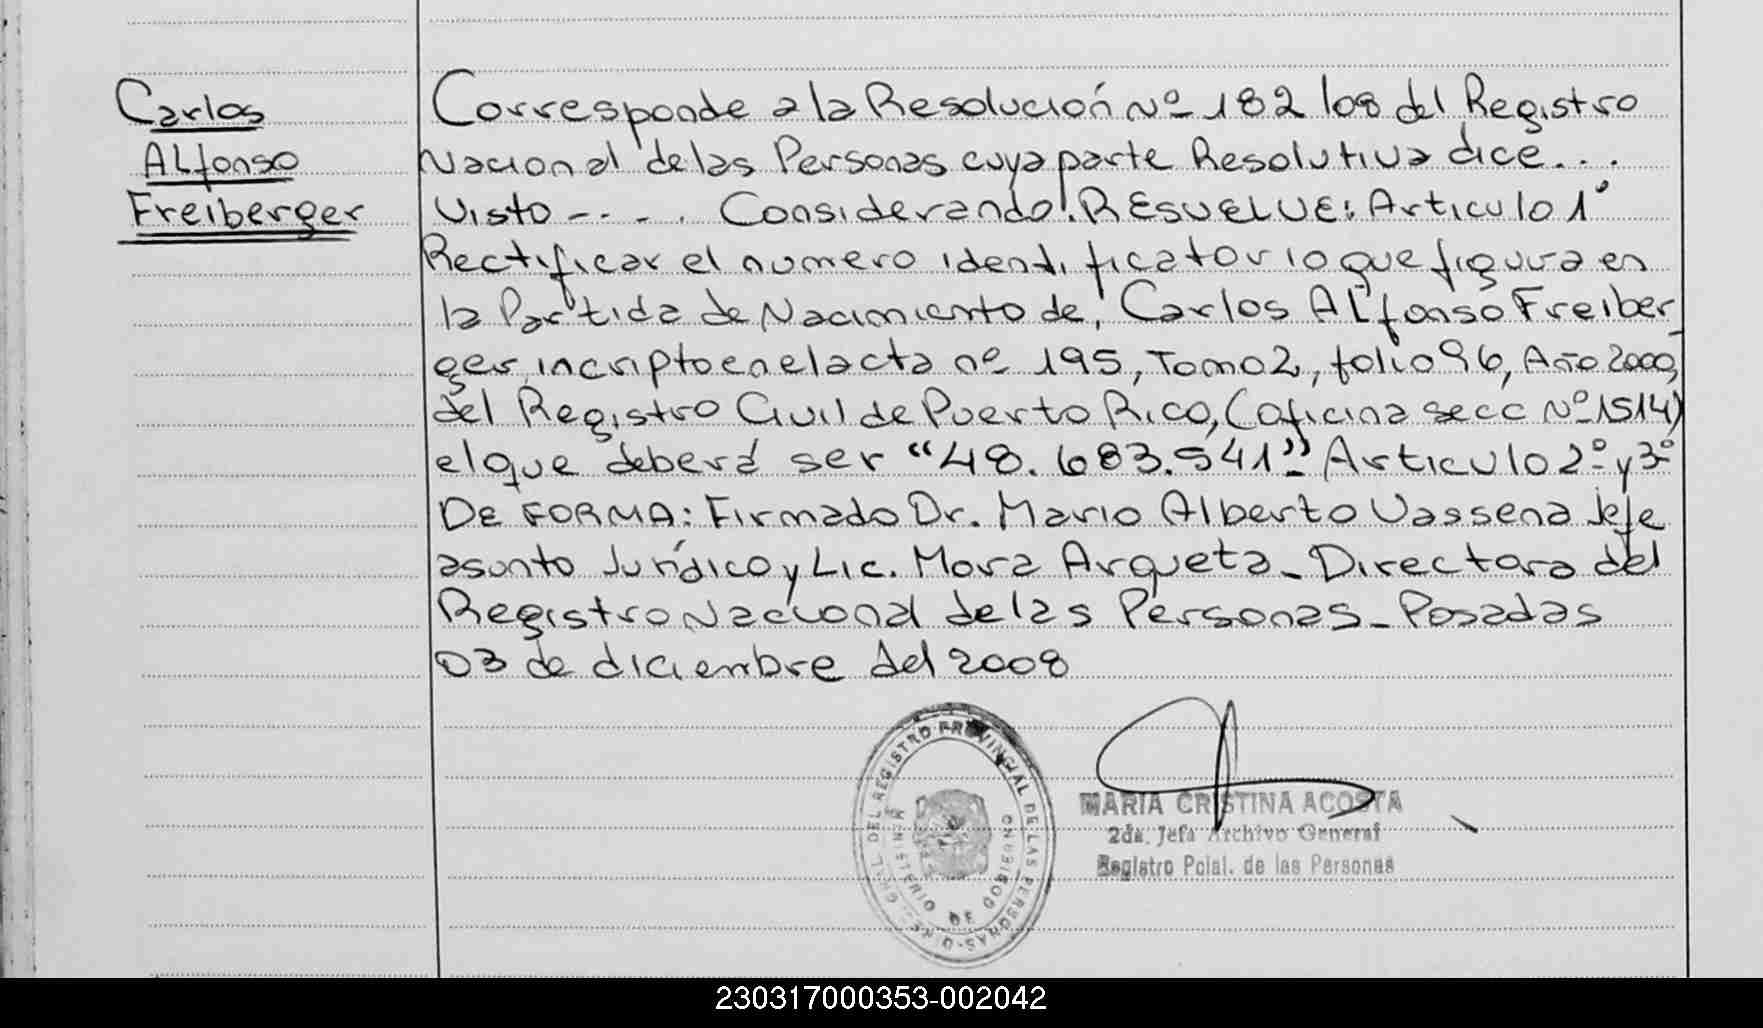 Carlos
ALfonso
Freiberger
Corresponde a la Resolución Nº 182/08 del Registro
Nacional de las Personas cuya parte Resolutiva dice...
Visto - - . . Considerando: RESUELVE: Articulo 1°
Rectificar el numero identificatorio que figura en
la Partida de Nacimiento de, Carlos ALfonso Freiber_
ger, incripto en el acta nº 195, Tomo 2, folio 96, Año 2000,
del Registro Civil de Puerto Rico, (oficina secc Nº 1514)
el que deberá ser "48.683.541"- Articulo 2º y 3º
DE FORMA: Firmado Dr. Mario Alberto Vassena Jefe
asunto Jurídico y Lic. Mora Arqueta - Directora del
Registro Nacional de las Personas - Posadas
03 de diciembre del 2008
DIREC. GRAL. DEL REGISTRO PROVINCIAL DE LAS PERSONAS
MINISTERIO DE GOBIERNO
MARIA CRISTINA ACOSTA
2da. Jefa Archivo General
Registro Pcial. de las Personas
230317000353-002042